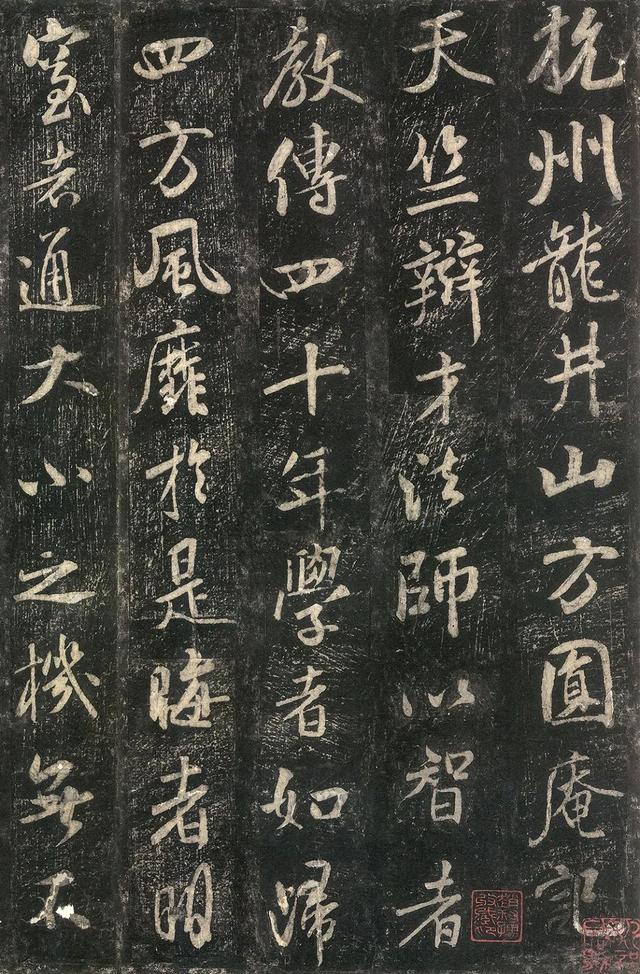 杭州龍井山方圓庵記
天竺辯才法師以智者
教傳四十年學者如歸
四方風靡於是晦者明
窒者通大小之機無不